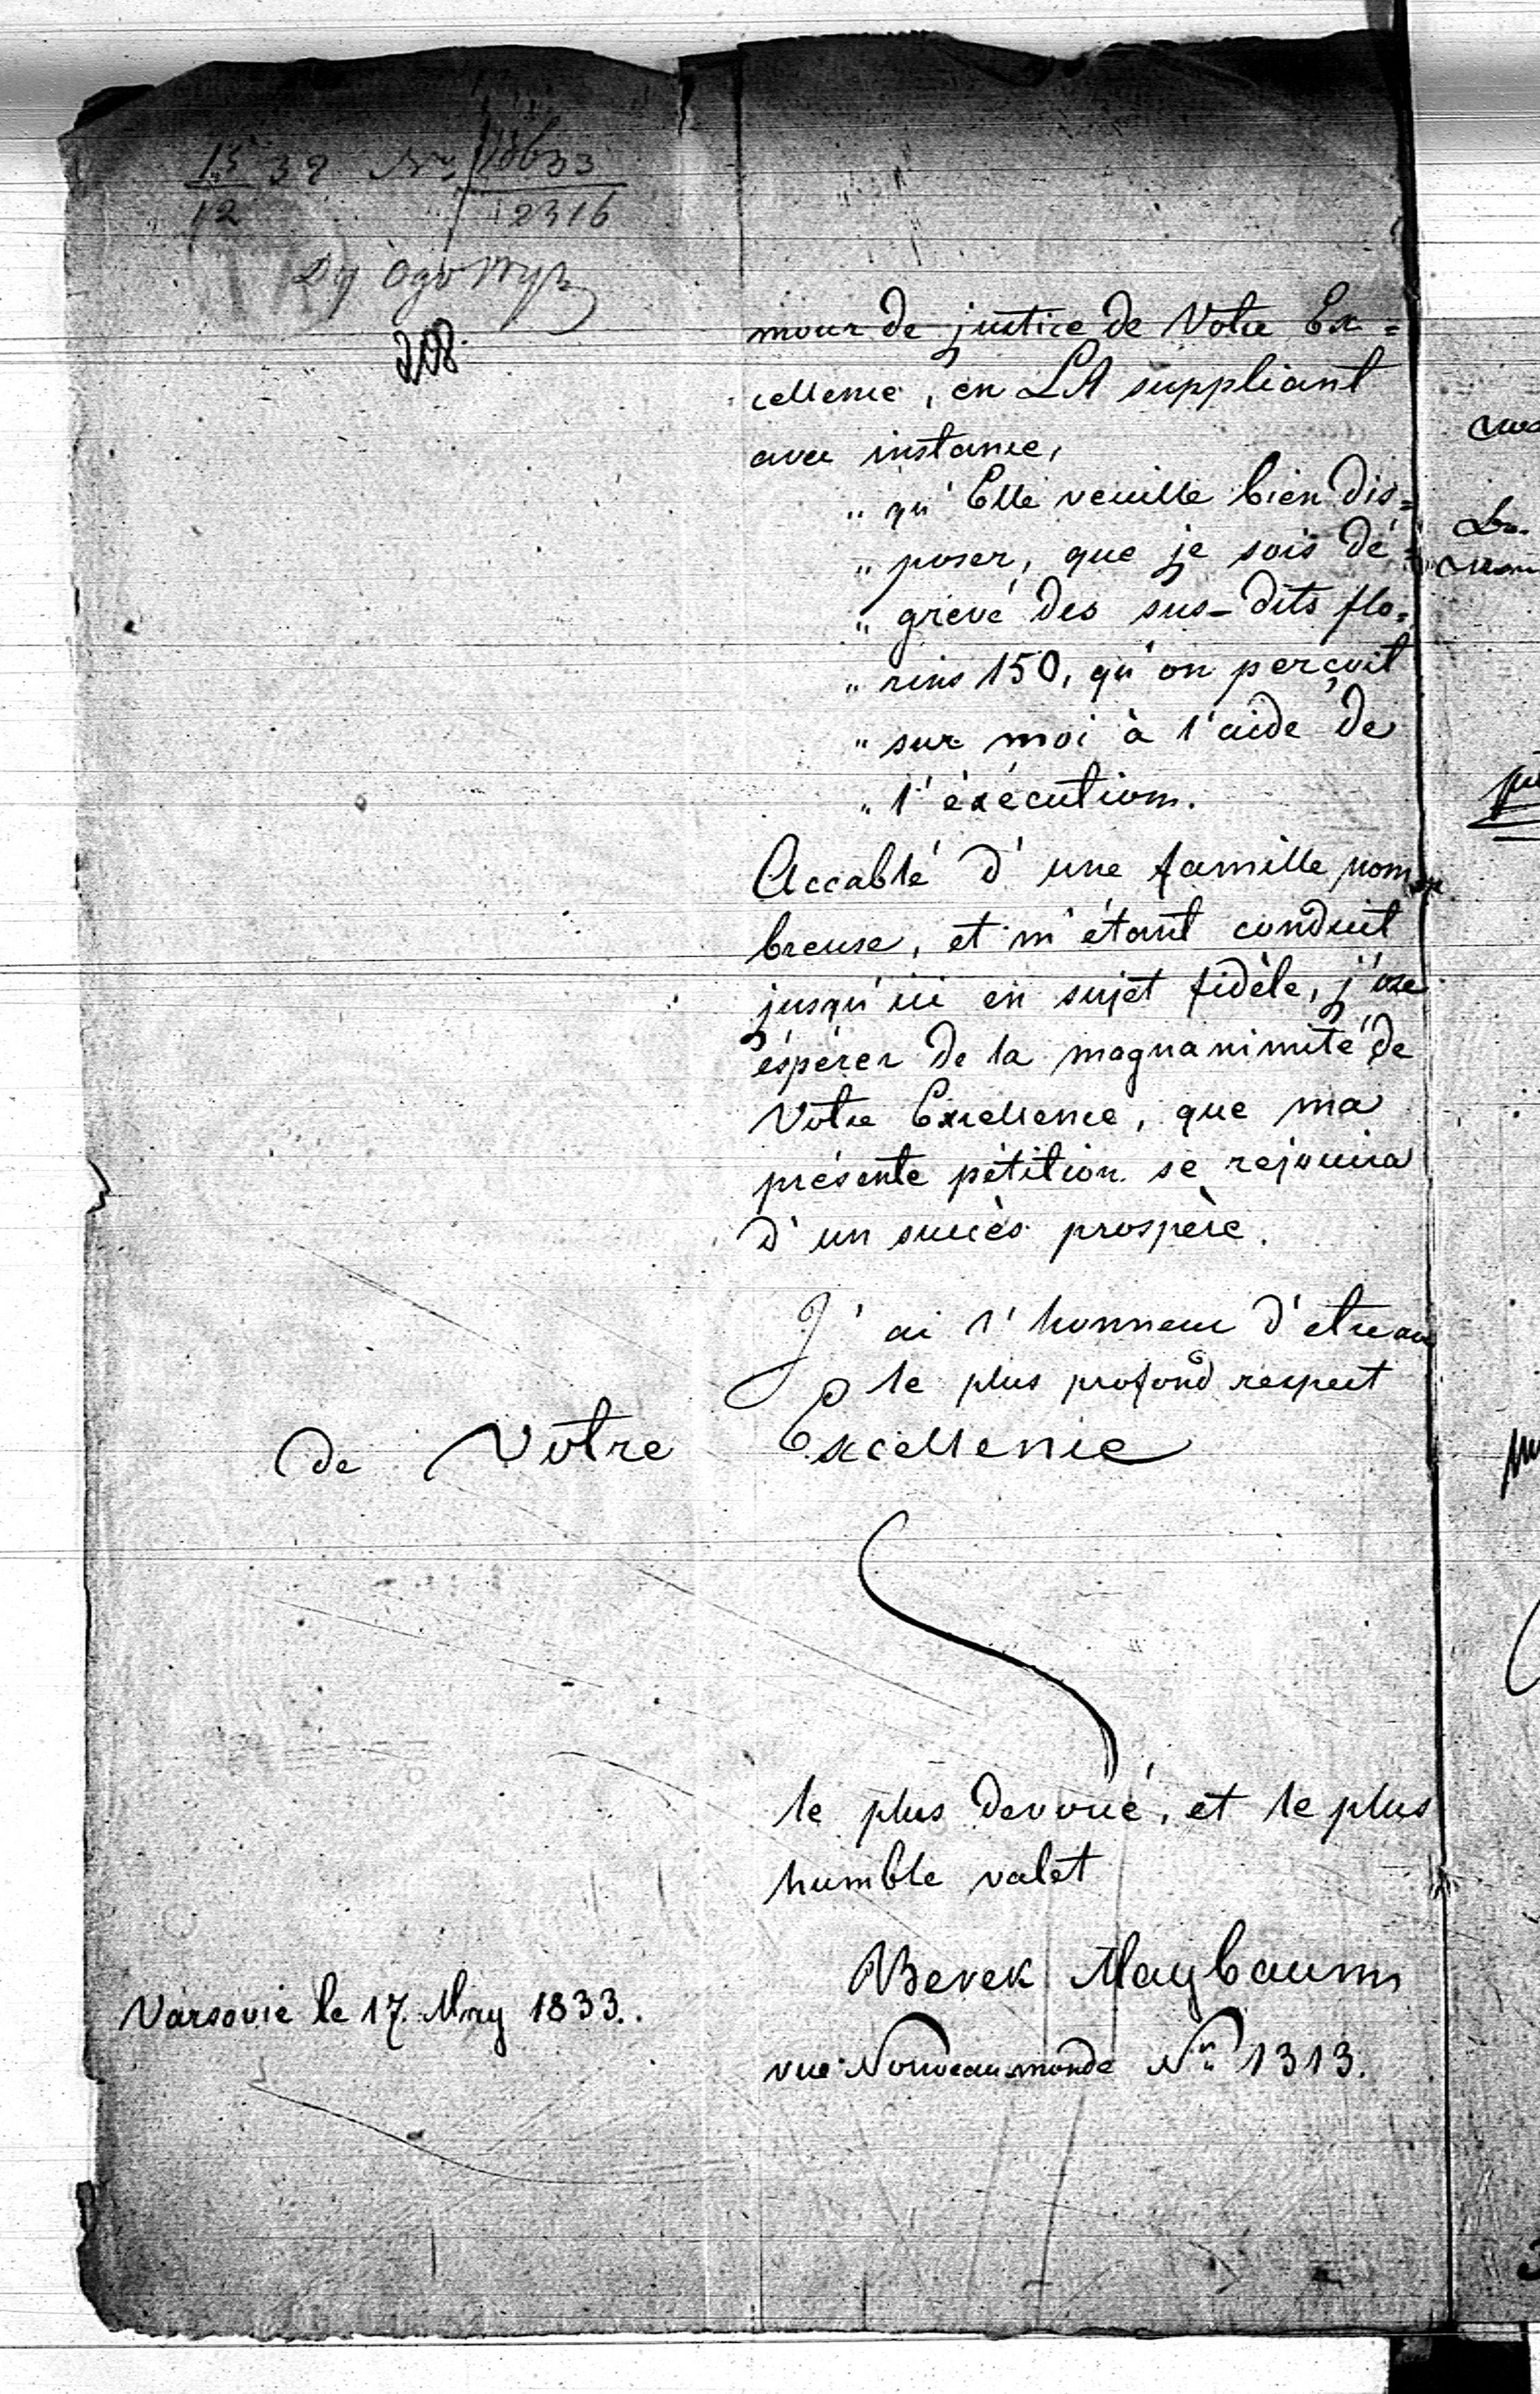 15/12 32 Nr
2316
208.
mour de justice de Votre Ex=
cellence, en LA suppliant
avec instance,
„ qu'Elle veuille bien dis=
„ poser, que je sois dé=
„ grevé des sus-dits flo=
„ rins 150, qu'on perçoit
„ sur moi à l'aide de
„ l'éxécution.
Accablé d'une famille nom=
breuse, et m'étant conduit
jusqu'ici en sujet fidèle, j'ose
éspérer de la magnanimité de
Votre Excellence, que ma
présente pétition se rejouira
d'un succès prospère.
J'ai l'honneur d'etre au
le plus profond respect
de Votre Excellence
le plus devoué, et le plus
humble valet
Berek Maybaum
Varsovie le 17. May 1833.
rue Nouveau monde Nr 1313.